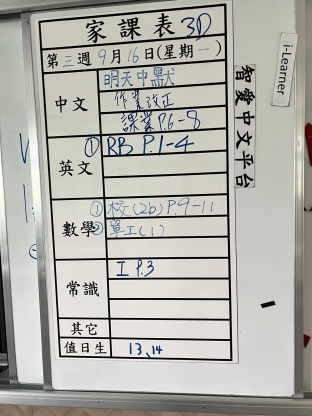 家課表 3D
第三週9月16日(星期一)
中文
明天中默
作業改正
課業P.6-8
英文
① RB P.1-4
數學
① 校(2b) P.9-11
② 單工(1)
常識
工 P.3
其它
值日生
13、14
i-Learner
智愛中文平台